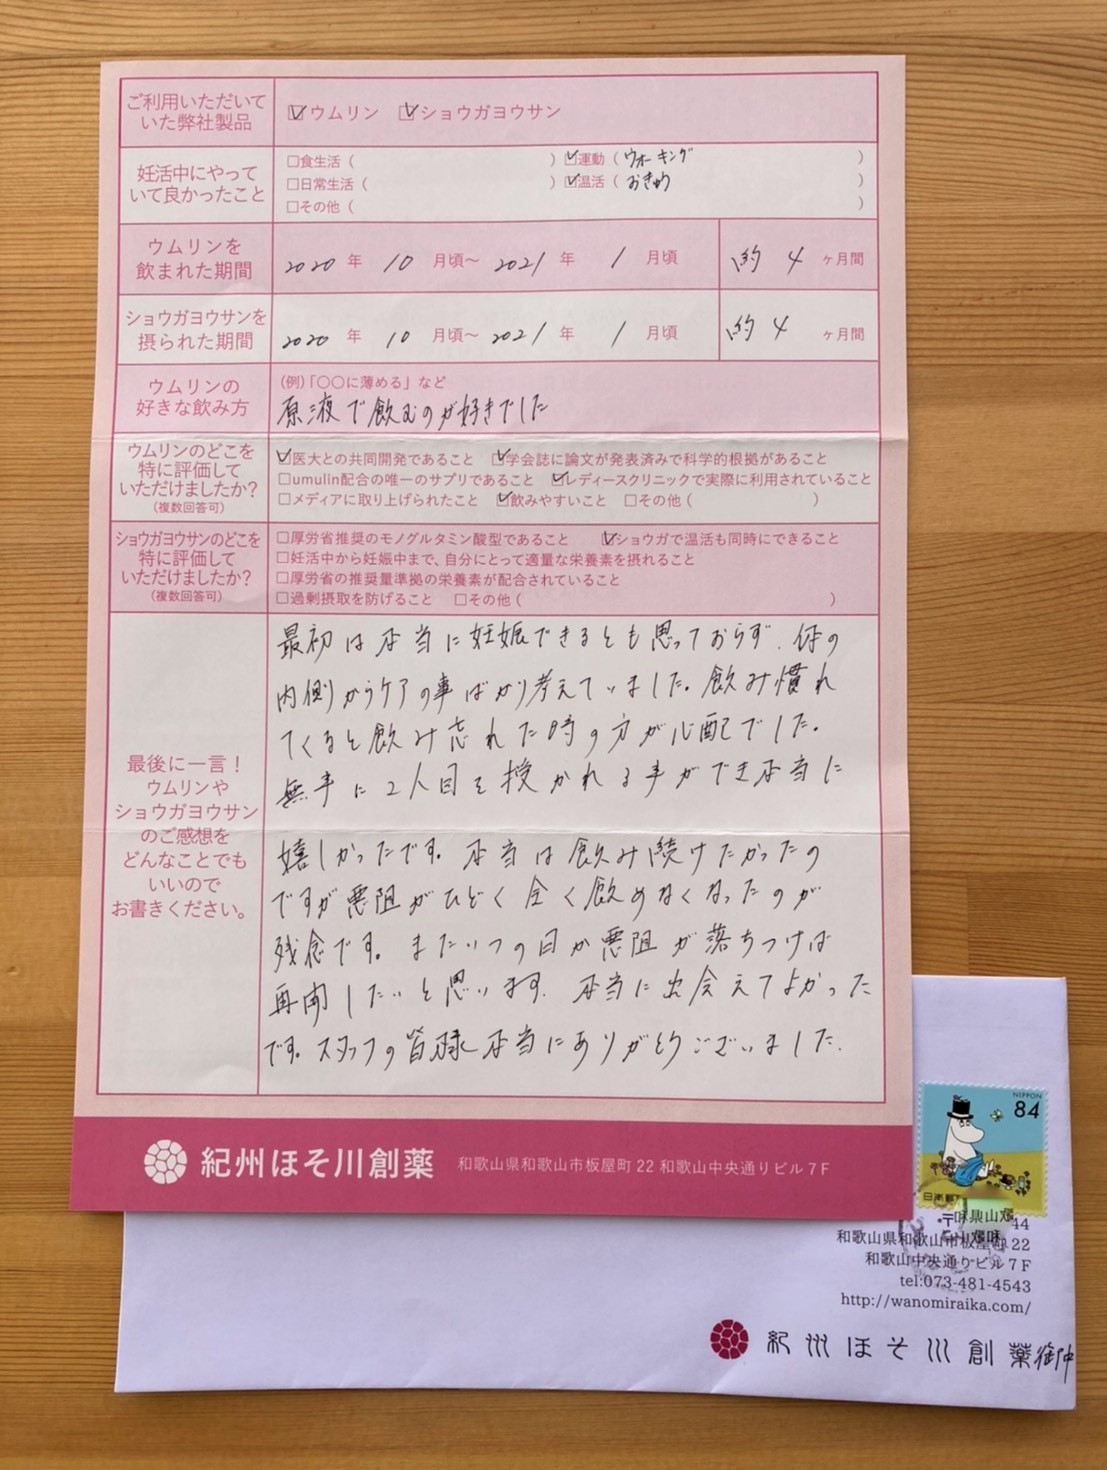 ご利用いただいて
いた弊社製品
☑ウムリン ☑ショウガヨウサン
妊活中にやって
いて良かったこと
□食生活（ ）☑運動（ウォーキング ）
□日常生活（ ）☑温活（おきゅう ）
□その他（ ）
ウムリンを
飲まれた期間
2020 年 10 月頃〜 2021 年 1 月頃 約 4 ヶ月間
ショウガヨウサンを
摂られた期間
2020 年 10 月頃〜 2021 年 1 月頃 約 4 ヶ月間
ウムリンの
好きな飲み方
(例)「〇〇に薄める」など
原液で飲むのが好きでした
ウムリンのどこを
特に評価して
いただけましたか?
(複数回答可)
☑医大との共同開発であること ☑学会誌に論文が発表済みで科学的根拠があること
□umulin配合の唯一のサプリであること ☑レディースクリニックで実際に利用されていること
□メディアに取り上げられたこと ☑飲みやすいこと □その他( )
ショウガヨウサンのどこを
特に評価して
いただけましたか?
(複数回答可)
□厚労省推奨のモノグルタミン酸型であること ☑ショウガで温活も同時にできること
□妊活中から妊娠中まで、自分にとって適量な栄養素を摂れること
□厚労省の推奨量準拠の栄養素が配合されていること
□過剰摂取を防げること □その他( )
最後に一言！
ウムリンや
ショウガヨウサン
のご感想を
どんなことでも
いいので
お書きください。
最初は本当に妊娠できるとも思っておらず、体の
内側からケアの事ばかり考えていました。飲み慣れ
てくると飲み忘れた時の方が心配でした。
無事に2人目を授かれる事ができ本当に
嬉しかったです。本当は飲み続けたかったの
ですが悪阻がひどく全く飲めなくなったのが
残念です。またいつの日か悪阻が落ちつけば
再開したいと思います。本当に出会えてよかった
です。スタッフの皆様本当にありがとうございました。
紀州ほそ川創薬 和歌山県和歌山市板屋町 22 和歌山中央通りビル 7 F
NIPPON
84
日本郵便
〒 44
和歌山県和歌山市板屋町 22
和歌山中央通りビル 7 F
tel:073-481-4543
http://wanomiraika.com/
紀州ほそ川創薬 御中